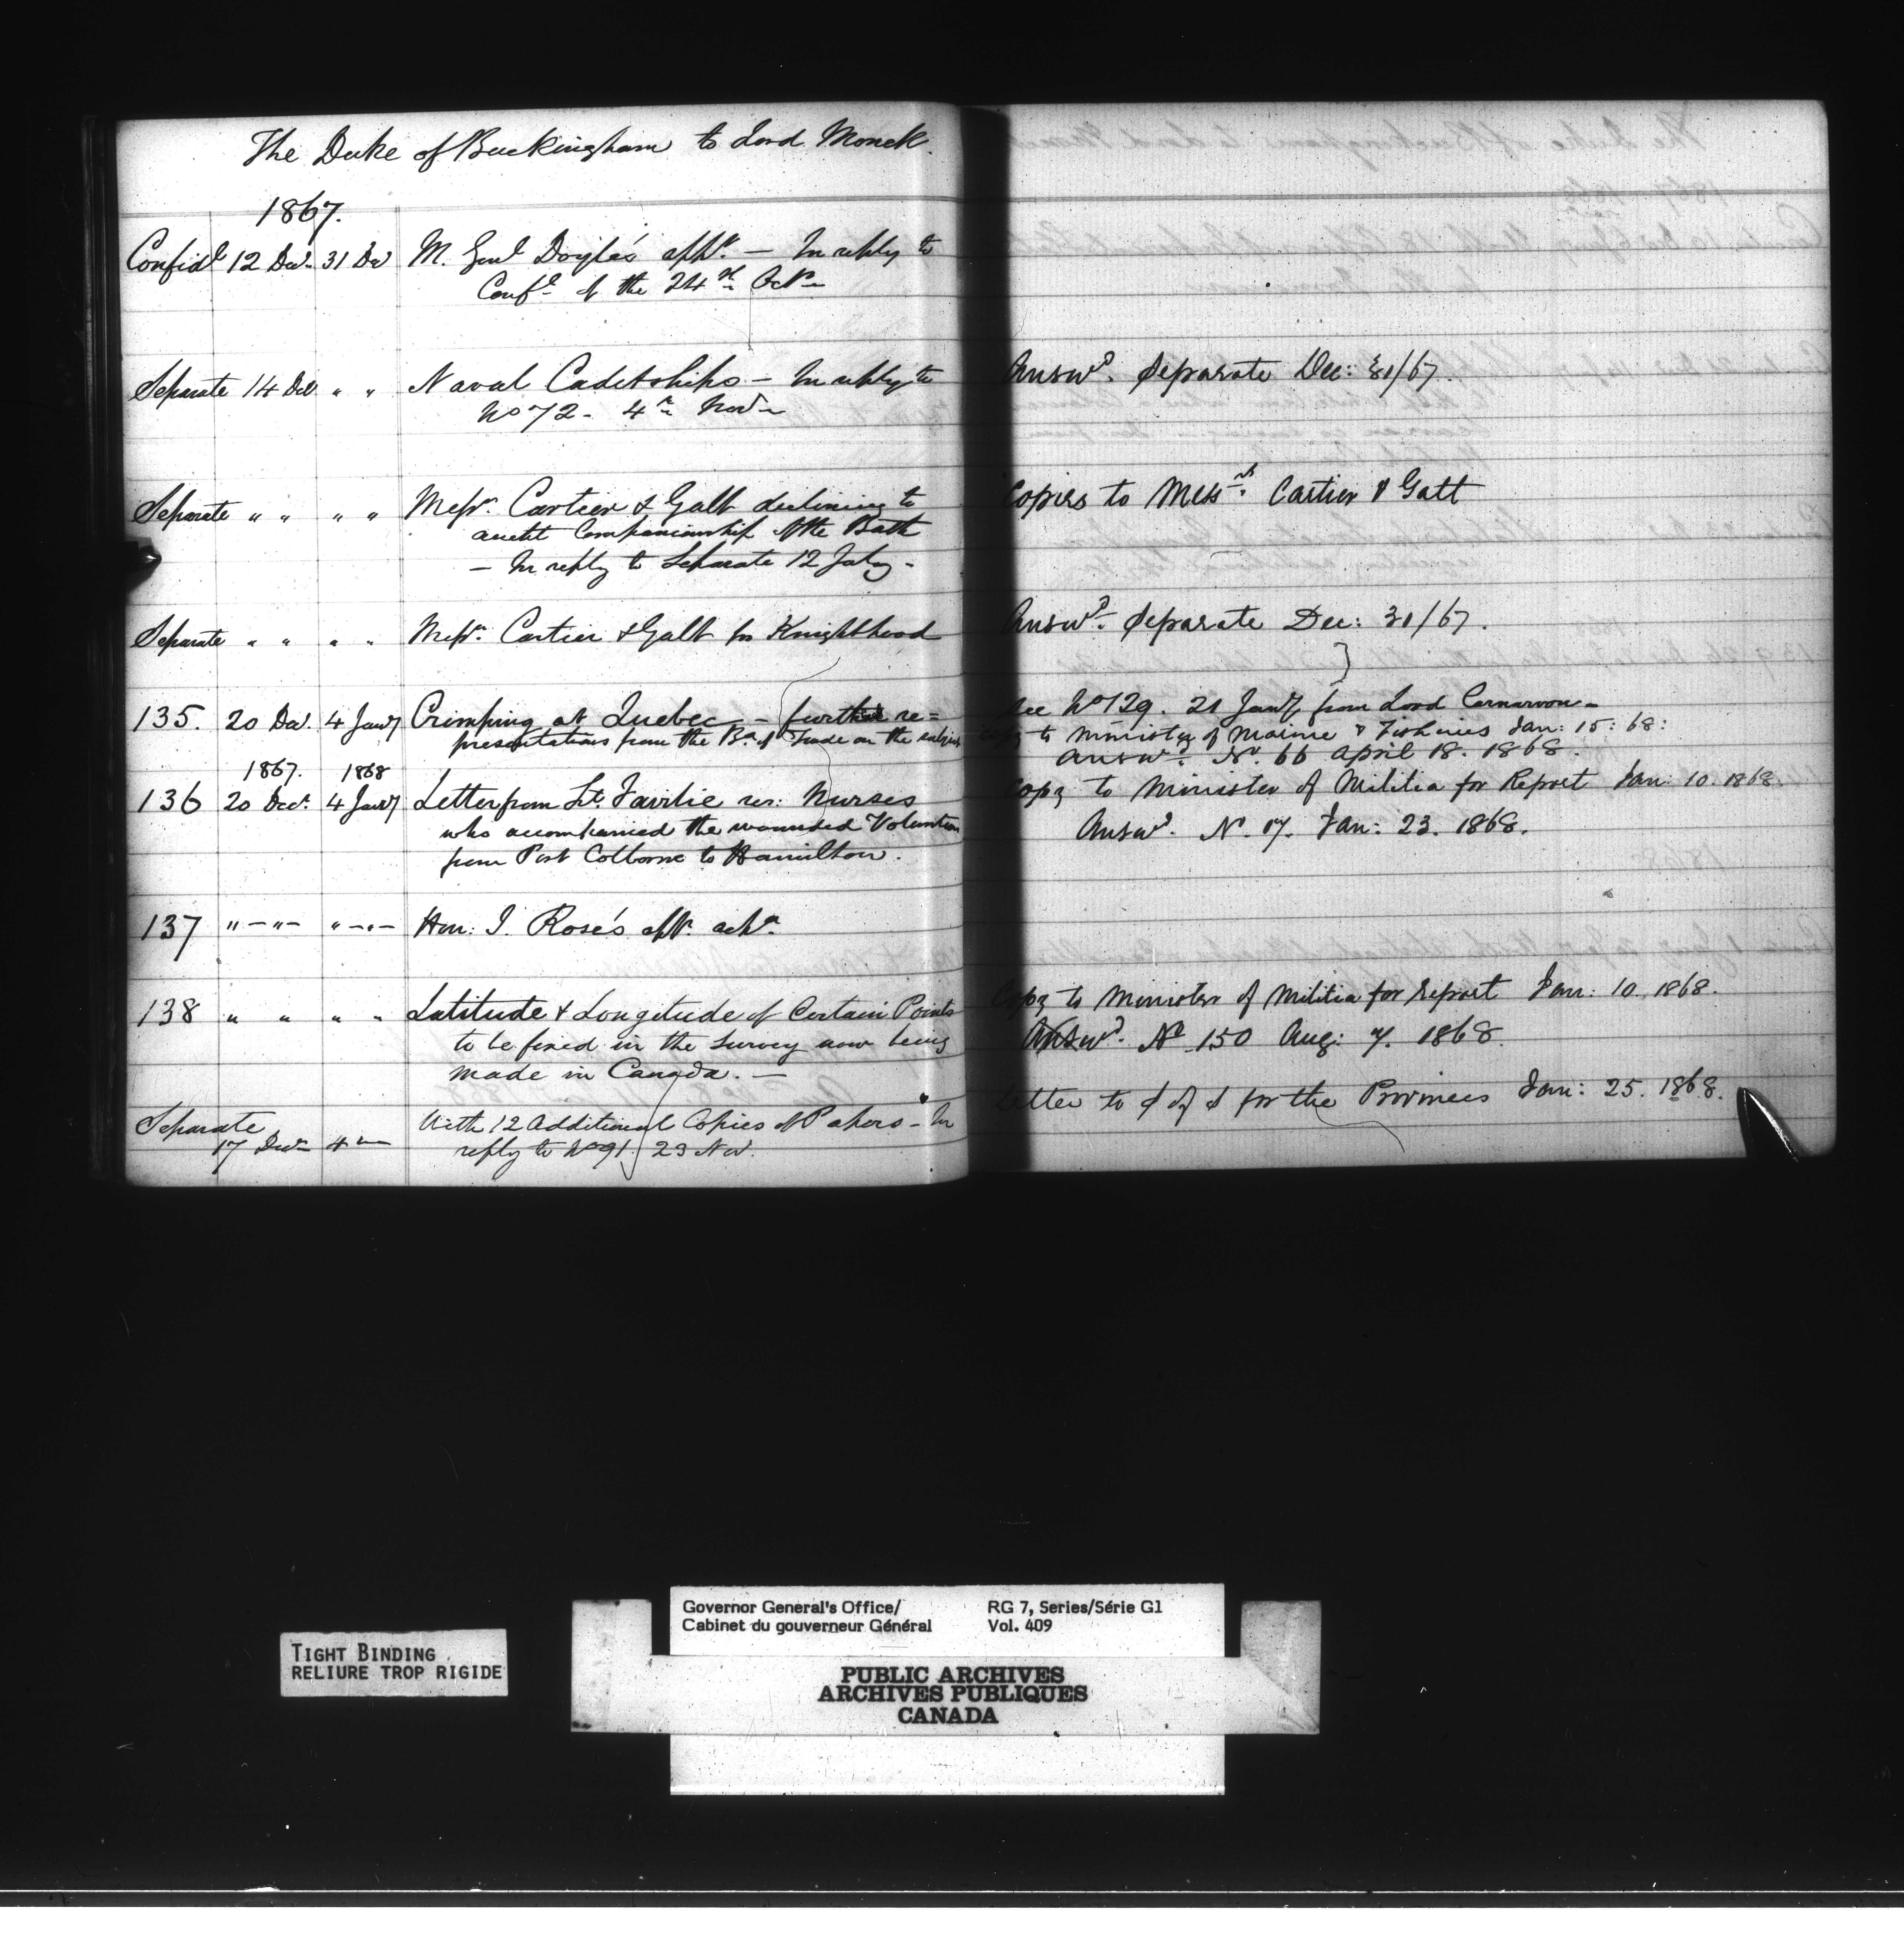 The Duke of Buckingham to Lord Monck.
1867.
Confidl 12 Decr 31 Dec M. Genl Doyle's appt. — In reply to
Confl of the 24th Octr
Separate 14 Dec " " Naval Cadetships — In reply to
No 72 - 4th Novr
Answd. Separate Dec: 31/67.
Separate " " " " Messrs. Cartier & Galt declining to
accept Companionship of the Bath
— In reply to Separate 12 July -
Copies to Messrs. Cartier & Galt
Separate " " " " Messrs. Cartier & Galt for Knighthood
Answd. Separate Dec: 31/67.
135. 20 Decr. 4 Jany Crimping at Quebec — further re=
presentations from the Bd. of Trade on the subject
See No 129. 21 Jany from Lord Carnarvon -
Copy to Minister of Marine & Fisheries Jan: 15: 68:
Answd. No. 66 April 18. 1868.
1867. 1868
136 20 Decr. 4 Jany Letter from Lt. Fairlie res: Nurses
who accompanied the wounded Volunteers
from Port Colborne to Hamilton.
Copy to Minister of Militia for Report Jan: 10. 1868.
Answd. No. 17. Jan: 23. 1868.
137 " — " — " — " — Hon: J. Rose's appt.
138 " " " " Latitude & Longitude of Certain Points
to be fixed in the Survey now being
made in Canada. —
Copy to Minister of Militia for Report Jan: 10. 1868.
Answd. No 150 Aug: 7. 1868.
Separate
17 Decr 4 " With 12 Additional Copies of Papers - In
reply to No 91. 23 Nov.
Letter to S of S for the Provinces Jan: 25. 1868.
Governor General's Office/
Cabinet du gouverneur Général
RG 7, Series/Série G1
Vol. 409
TIGHT BINDING
RELIURE TROP RIGIDE
PUBLIC ARCHIVES
ARCHIVES PUBLIQUES
CANADA